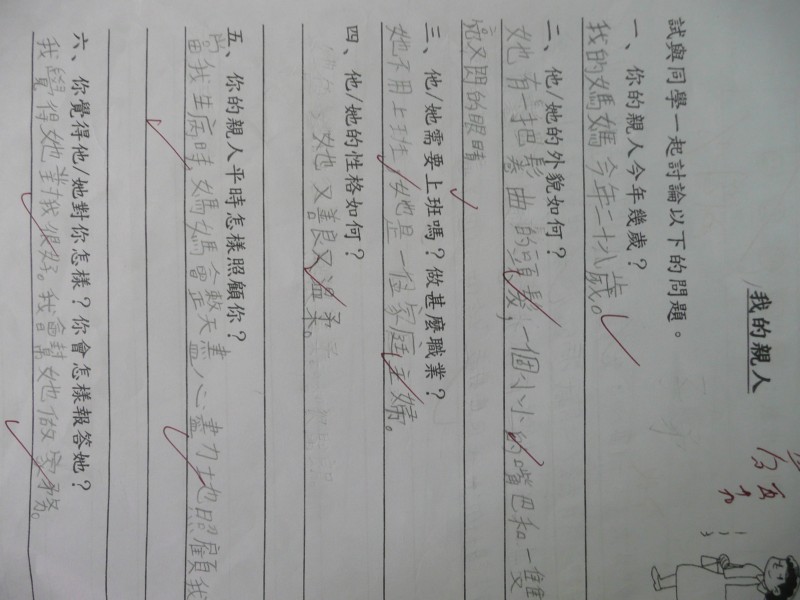 我的親人
試與同學一起討論以下的問題。
一、你的親人今年幾歲？
我的媽媽今年二十八歲。
二、他/她的外貌如何？
她有一把鬈曲的頭髮，一個小小的嘴巴和一雙
又閃的眼睛
三、他/她需要上班嗎？做甚麼職業？
她不用上班，她是一位家庭主婦。
四、他/她的性格如何？
她又善良又温柔。
五、你的親人平時怎樣照顧你？
當我生病時，媽媽會整天盡心盡力地照顧我
六、你覺得他/她對你怎樣？你會怎樣報答她？
我覺得她對我很好。我會幫她做家務。